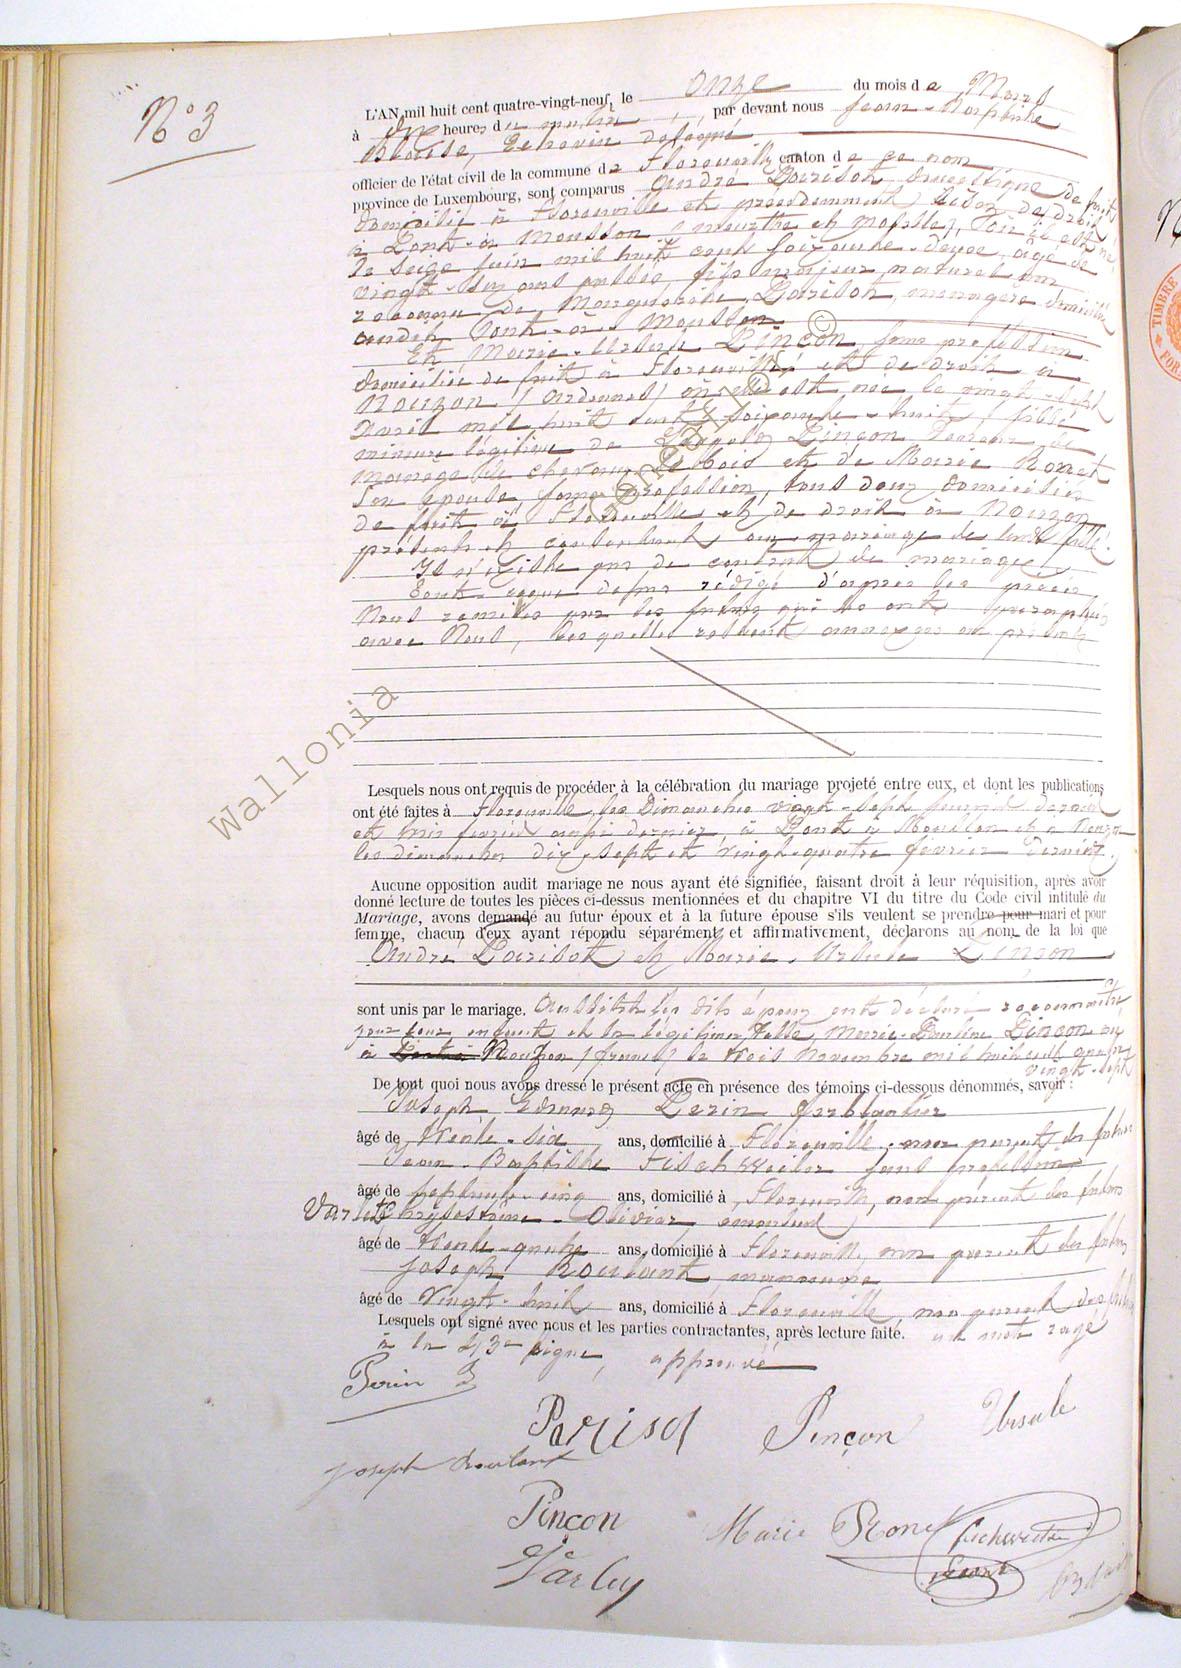 N° 3
L'AN mil huit cent quatre-vingt-neuf, le onze du mois de Mars
à dix heures du matin, par devant nous Jean-Baptiste
Blaise, Echevin délégué
officier de l'état civil de la commune de Florenville canton de ce nom
province de Luxembourg, sont comparus André Parisot domestique de fait
domicilié à Florenville et précédemment de droit
à Pont-à-Mousson (Meurthe et Moselle), où il est né
le seize juin mil huit cent soixante-deux, âgé de
vingt-six ans passés, fils majeur, naturel non
reconnu de Marguerite Parisot, ménagère domiciliée
audit Pont-à-Mousson
Et Marie-Ursule Pinçon, sans profession
domiciliée de fait à Florenville et de droit à
Nouzon (Ardennes) où elle est née le vingt-sept
Avril mil huit cent soixante-huit, fille
mineure légitime de Pinçon Teneur de
manège de chevaux de bois et de Marie Ronet
son épouse, sans profession, tous deux domiciliés
de fait à Florenville et de droit à Nouzon
présents et consentant au mariage de leur fille.
Il n'existe pas de contrat de mariage
Tout ce que dessus rédigé d'après les pièces
Nous remises par les futurs qui les ont paraphées
avec Nous, lesquelles restent annexées au présent
Lesquels nous ont requis de procéder à la célébration du mariage projeté entre eux, et dont les publications
ont été faites à Florenville les Dimanches vingt-sept janvier dernier
et trois février aussi dernier, à Pont à Mousson et à Nouzon
les dimanches dix-sept et vingt-quatre février dernier.
Aucune opposition audit mariage ne nous ayant été signifiée, faisant droit à leur réquisition, après avoir
donné lecture de toutes les pièces ci-dessus mentionnées et du chapitre VI du titre du Code civil intitulé du
Mariage, avons demandé au futur époux et à la future épouse s'ils veulent se prendre pour mari et pour
femme, chacun d'eux ayant répondu séparément et affirmativement, déclarons au nom de la loi que
André Parisot et Marie-Ursule Pinçon
sont unis par le mariage. Aussitôt les dits époux ont déclaré reconnaître
pour leur enfant et la légitimer telle, Marie- Pinçon née
à Nouzon (france) le trois Novembre mil huit cent quatre
vingt-sept
De tout quoi nous avons dressé le présent acte en présence des témoins ci-dessous dénommés, savoir :
Joseph Edmond Perin ferblantier
âgé de trente-six ans, domicilié à Florenville, non parent des futurs
Jean-Baptiste Fischweiler sans profession
âgé de septante-cinq ans, domicilié à Florenville, non parent des futurs
Varlet Chrysostôme-Olivier
âgé de trente-quatre ans, domicilié à Florenville, non parent des futurs
Joseph Roulant manœuvre
âgé de vingt-huit ans, domicilié à Florenville, non parent des futurs
Lesquels ont signé avec nous et les parties contractantes, après lecture faite. un mot rayé
à la 43e ligne, approuvé
Perin E
Parisot Pinçon Ursule
Joseph Roulant
Pinçon Marie Ronet
Varlet
Wallonia
TIMBRE